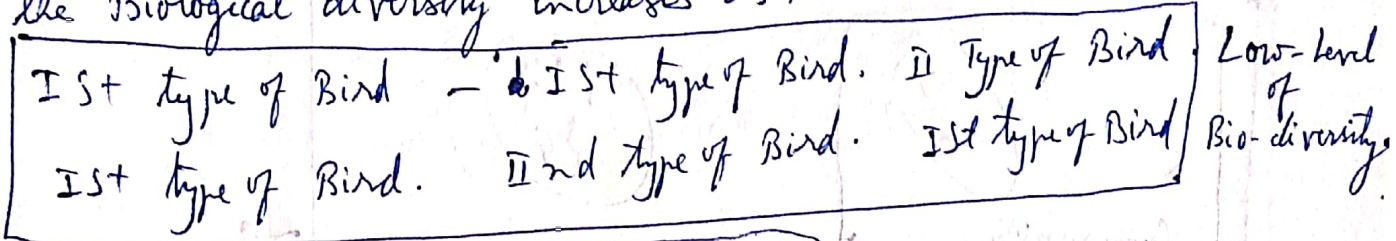 the Biological diversity increases
Ist type of Bird - Ist type of Bird. II Type of Bird
Ist type of Bird. IInd type of Bird. Ist type of Bird
Low-Level
of
Bio-diversity.